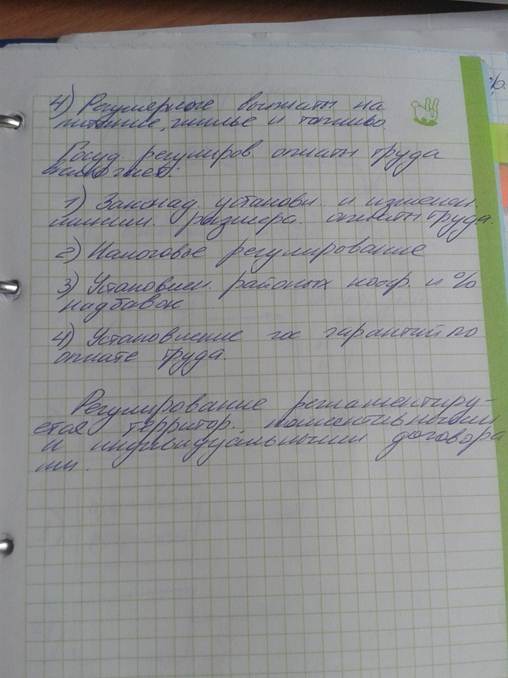 4) Регулярные выплаты на
питание, жилье и топливо
Госуд регулиров. оплаты труда
включает:
1) Законад. установл. и изменен.
миним. размера оплаты труда.
2) Налоговое регулирование
3) Установлен. районых коэф. и %
надбавок
4) Установление гос гарантий по
оплате труда.
Регулирование регламентиру-
ется территор. коллективными
и индивидуальными договора
ми.